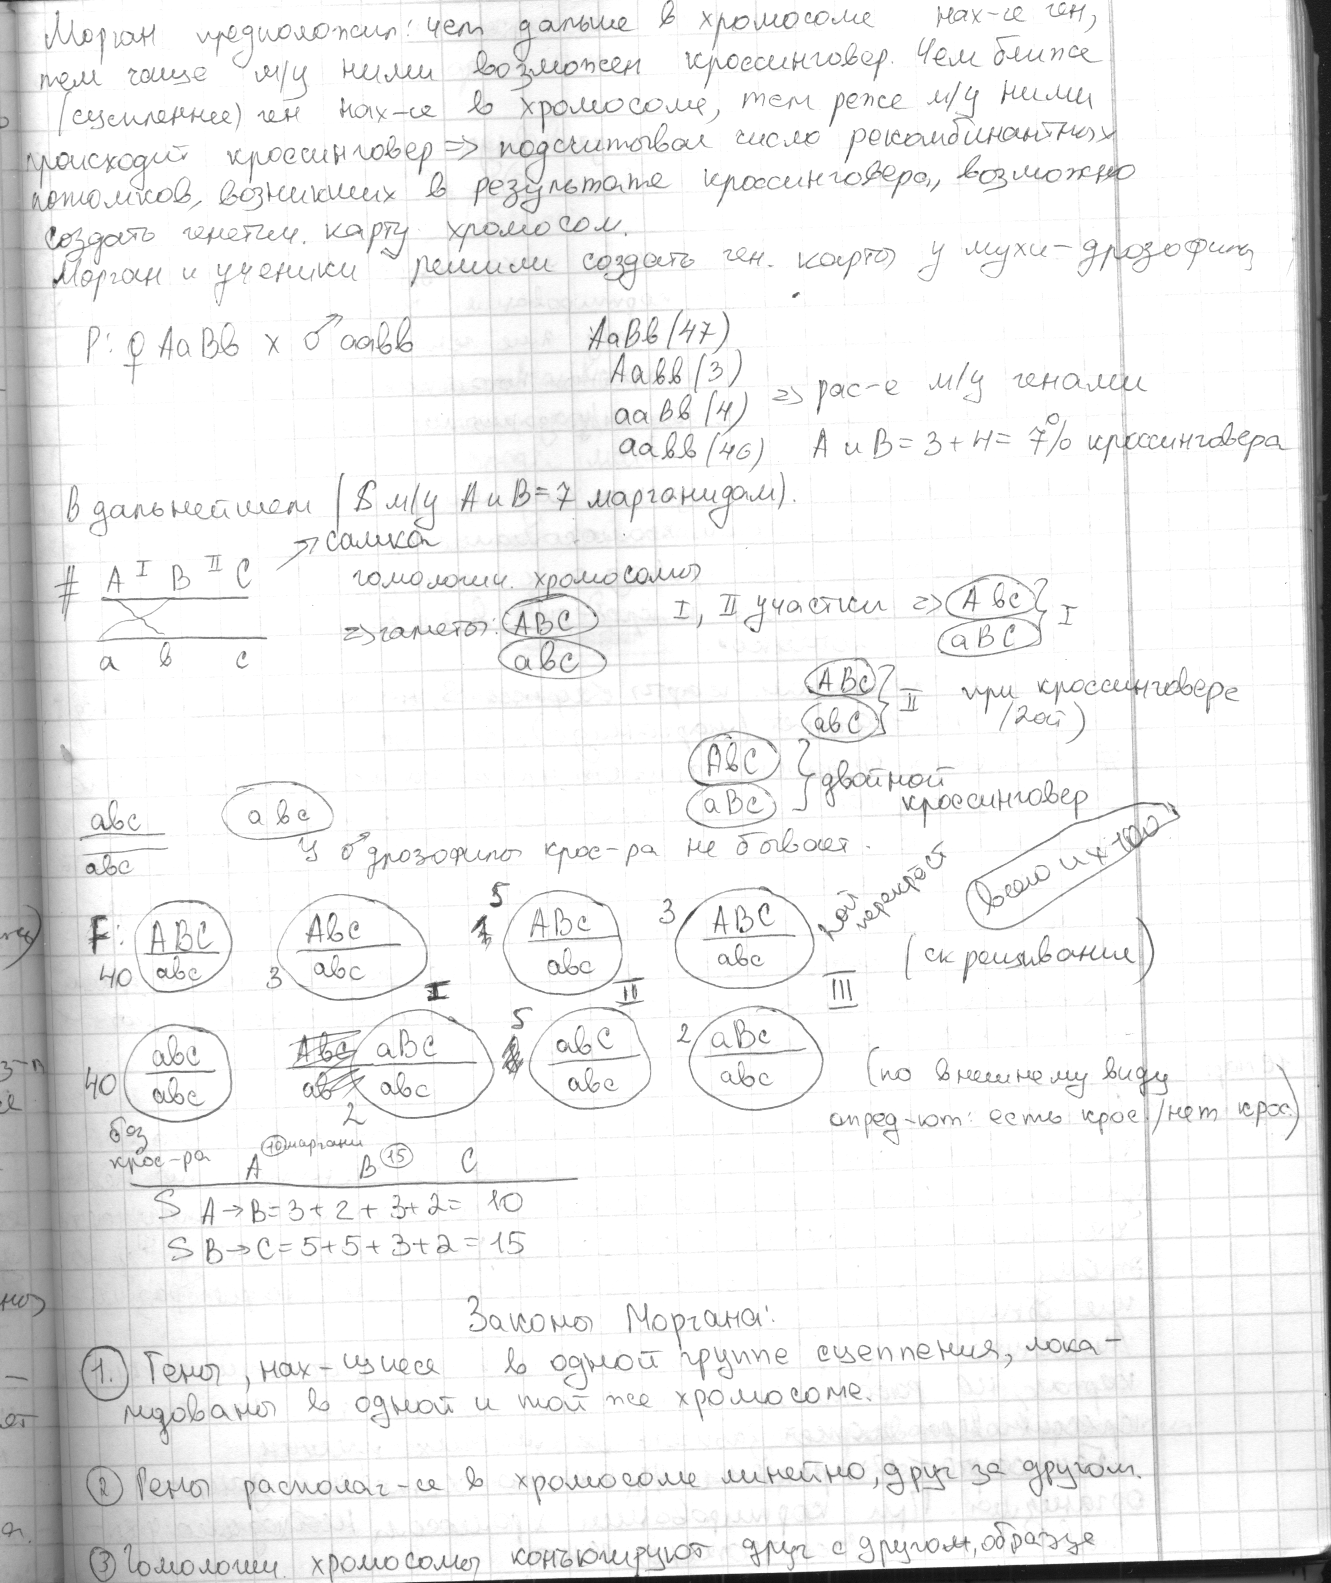 Морган предположил: чем дальше в хромосоме нах-ся ген,
тем чаще м/у ними возможен кроссинговер. Чем ближе
(сцепленнее) ген нах-ся в хромосоме, тем реже м/у ними
происходит кроссинговер => подсчитывая число рекомбинантных
потомков, возникших в результате кроссинговера, возможно
создать генетич. карту хромосом.
Морган и ученики решили создать ген. карты у мухи-дрозофилы
P: ♀ AaBb x ♂ aabb
AaBb (47)
Aabb (3)
aaBb (4)
aabb (46)
=> рас-е м/у генами
A и B = 3 + 4 = 7% кроссинговера
В дальнейшем (S м/у A и B = 7 марганидам).
# A I B II C → самка
a в c
гомологич. хромосомы
=> гаметы: ABC
abc
I, II участки => Abc
aBC
} I
ABc
abC
} II при кроссинговере
(2ой)
AbC
aBc
} двойной
кроссинговер
abc
abc
abc
У ♂ дрозофилы крос-ра не бывает.
всего их 100
F: 40 ABC
abc
3 Abc
abc
I
5 ABc
abc
II
3 ABC
abc
III
2ой
перекрёст
(скрещивание)
40 abc
abc
aBC
abc
2
5 abC
abc
2 aBc
abc
(по внешнему виду
опред-ют: есть крос/нет крос)
без
крос-ра
A 10 маргани B 15 C
S A→B = 3 + 2 + 3 + 2 = 10
S B→C = 5 + 5 + 3 + 2 = 15
Законы Моргана:
1. Гены, нах-щиеся в одной группе сцепления, лока-
лидованы в одной и той же хромосоме.
2 Гены располаг-ся в хромосоме линейно, друг за другом.
3 Гомологич. хромосомы конъюгируют друг с другом, образуе